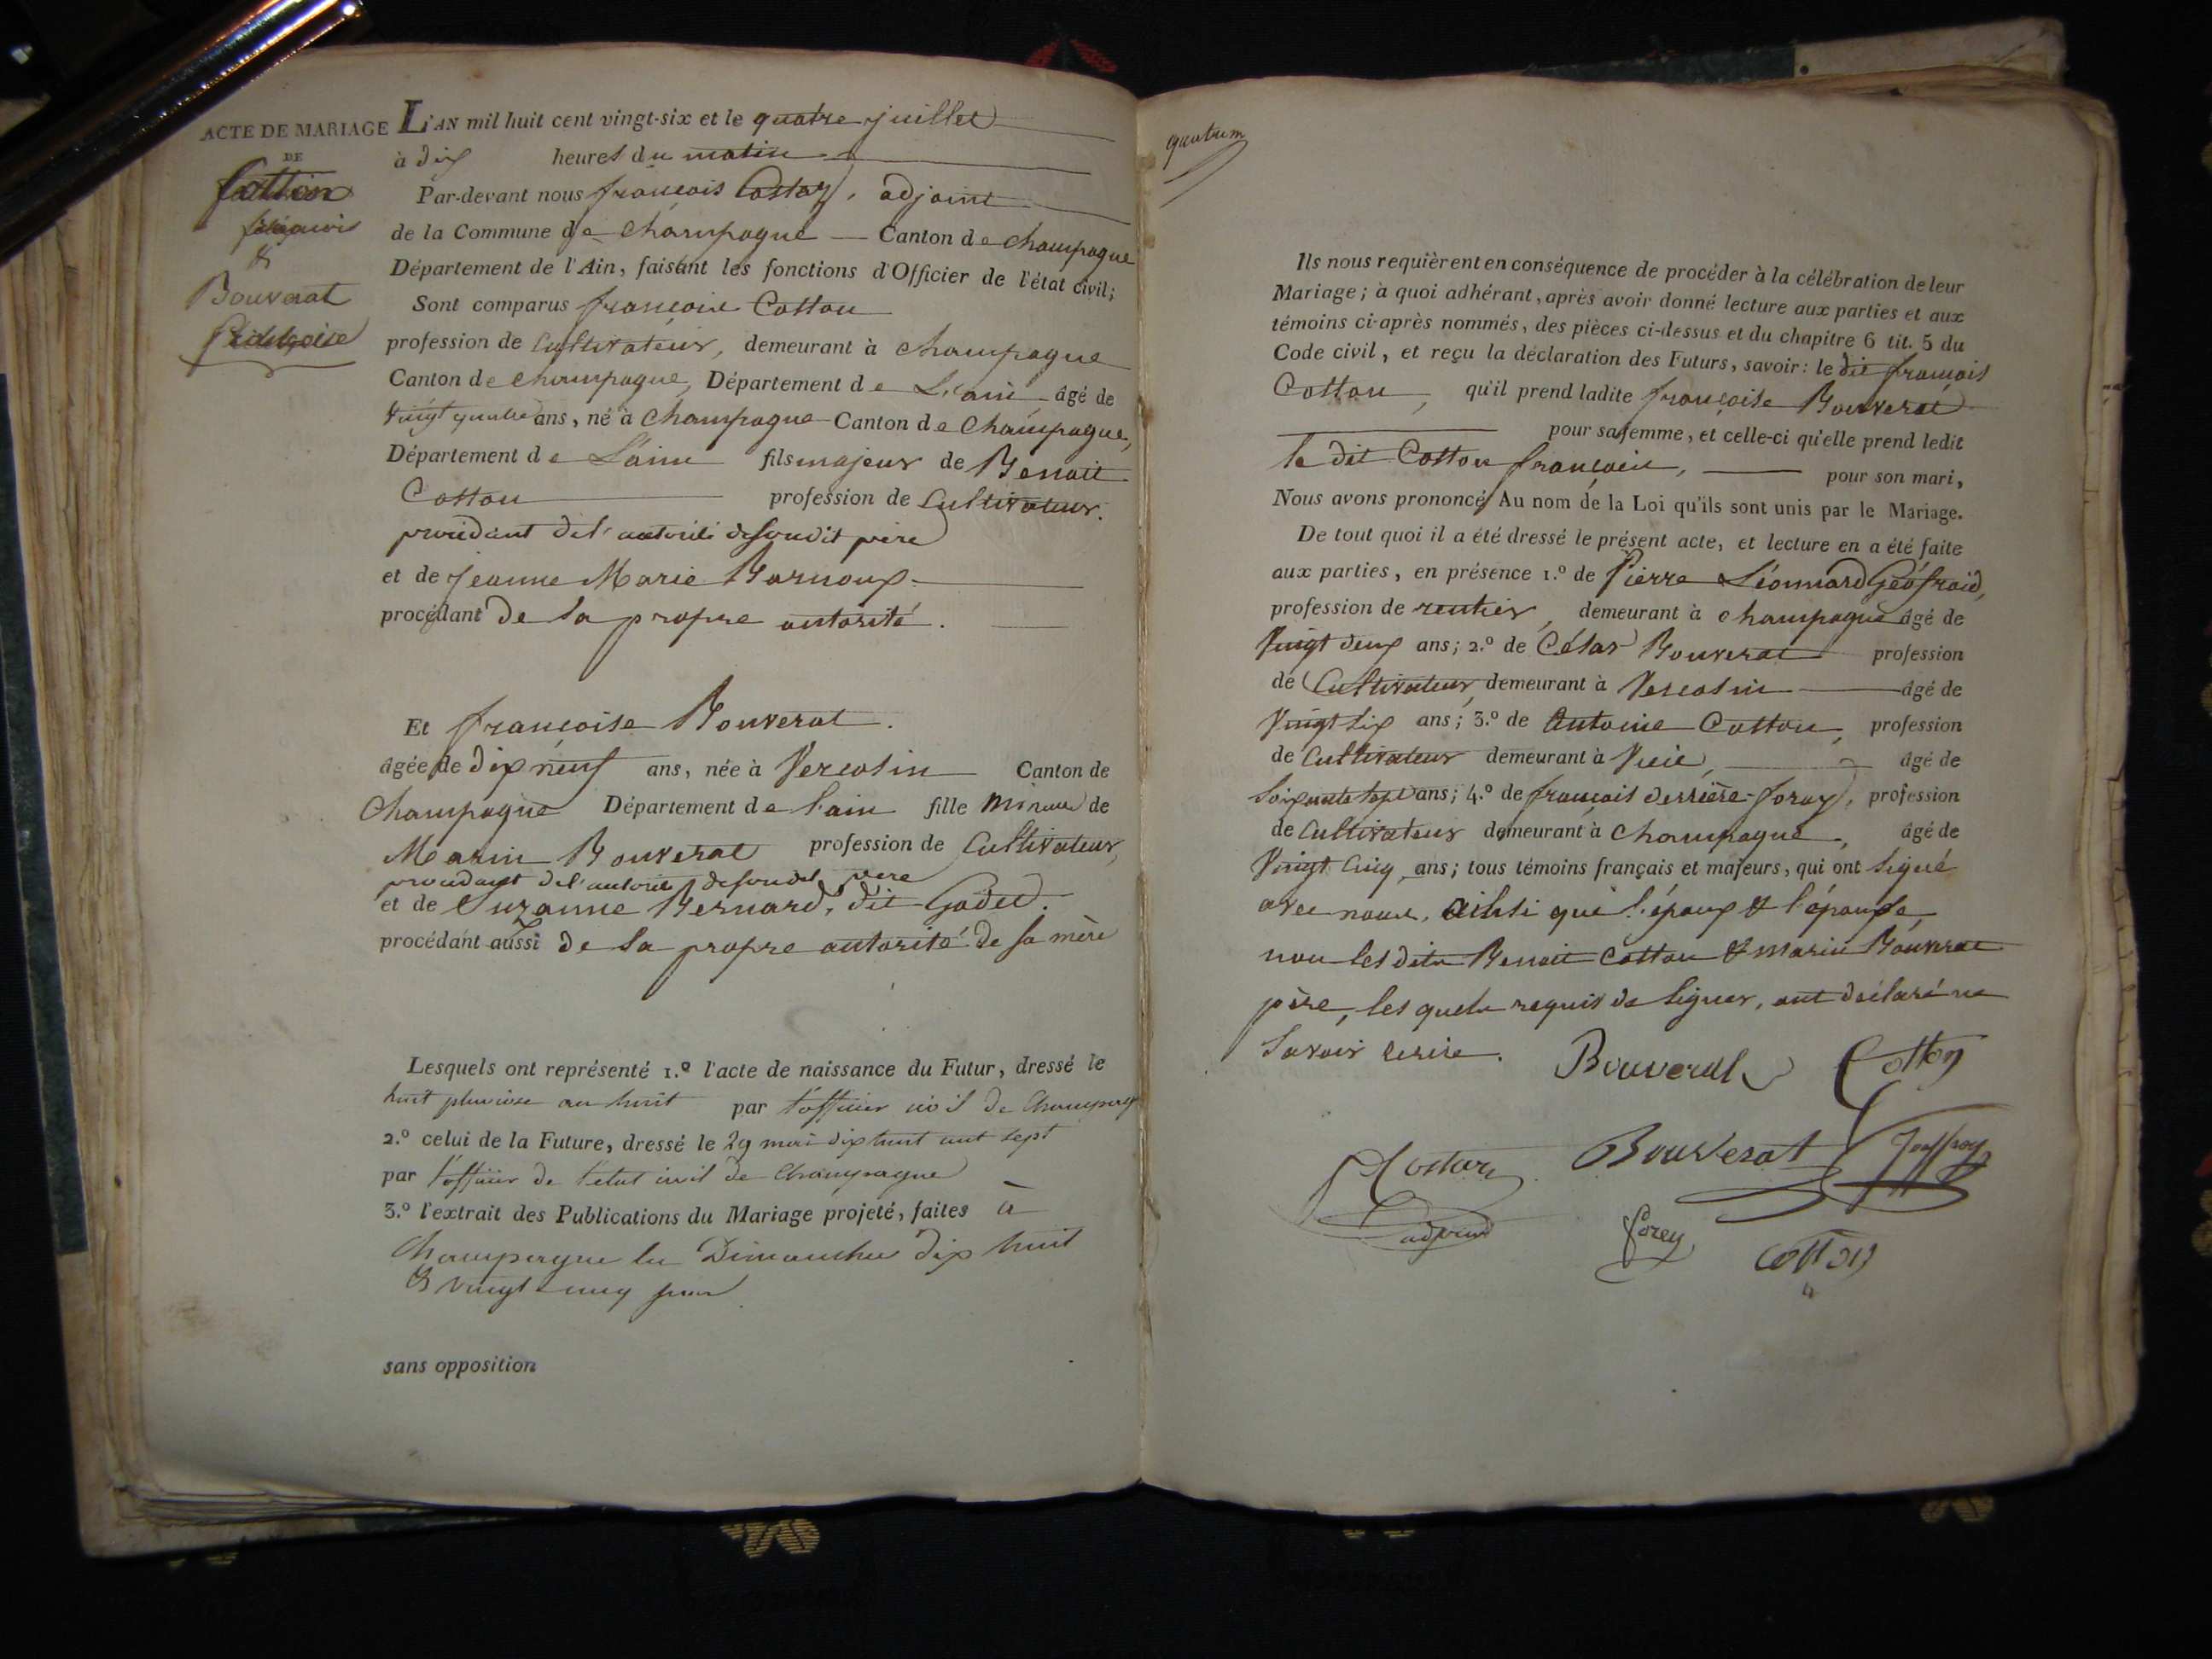 ACTE DE MARIAGE
DE
Cotton
françois
&
Bouverat
françoise
L'AN mil huit cent vingt-six et le quatre juillet
à dix heures du matin
Par-devant nous françois Costaz, adjoint
de la Commune de Champagne Canton de Champagne
Département de l'Ain, faisant les fonctions d'Officier de l'état civil;
Sont comparus françois Cotton
profession de Cultivateur, demeurant à Champagne
Canton de Champagne, Département de L'ain âgé de
Vingt quatre ans, né à Champagne Canton de Champagne,
Département de L'ain fils majeur de Benoit
Cotton profession de Cultivateur.
procédant de l'autorité de sondit père
et de Jeanne Marie Bornoux
procédant de sa propre autorité.
Et françoise Bouverat.
âgée de dix neuf ans, née à Vercosin Canton de
Champagne Département de l'ain fille mineure de
Marin Bouverat profession de Cultivateur,
procédant de l'autorité de sondit père
et de Suzanne Bernard, dit Godet.
procédant aussi de sa propre autorité de sa mère
Lesquels ont représenté 1.º l'acte de naissance du Futur, dressé le
huit pluviose an huit par l'officier civil de Champagne
2.º celui de la Future, dressé le 29 mai dix huit cent sept
par l'officier de l'état civil de Champagne
3.º l'extrait des Publications du Mariage projeté, faites à
Champagne les Dimanches dix huit
& vingt cinq juin
sans opposition
Ils nous requièrent en conséquence de procéder à la célébration de leur
Mariage; à quoi adhérant, après avoir donné lecture aux parties et aux
témoins ci-après nommés, des pièces ci-dessus et du chapitre 6 tit. 5 du
Code civil, et reçu la déclaration des Futurs, savoir: le dit françois
Cotton, qu'il prend ladite françoise Bouverat
pour sa femme, et celle-ci qu'elle prend ledit
le dit Cotton françois, pour son mari,
Nous avons prononcé Au nom de la Loi qu'ils sont unis par le Mariage.
De tout quoi il a été dressé le présent acte, et lecture en a été faite
aux parties, en présence 1.º de Pierre Léonnard Géofraid,
profession de rentier, demeurant à Champagne âgé de
Vingt deux ans; 2.º de César Bouverat profession
de Cultivateur, demeurant à Vercosin âgé de
Vingt six ans; 3.º de Antoine Cotton, profession
de Cultivateur demeurant à Vieu, âgé de
Soixante sept ans; 4.º de françois derrière-foray, profession
de Cultivateur demeurant à Champagne, âgé de
Vingt Cinq ans; tous témoins français et majeurs, qui ont signé
avec nous, ainsi que l'époux & l'épouse,
non les dits Benoit Cotton & marin Bouverat
père, les quels requis de signer, ont déclaré ne
savoir écrire.
Bouverat Cotton
Costaz Bouverat Jeoffroy
adjoint forey Cotton